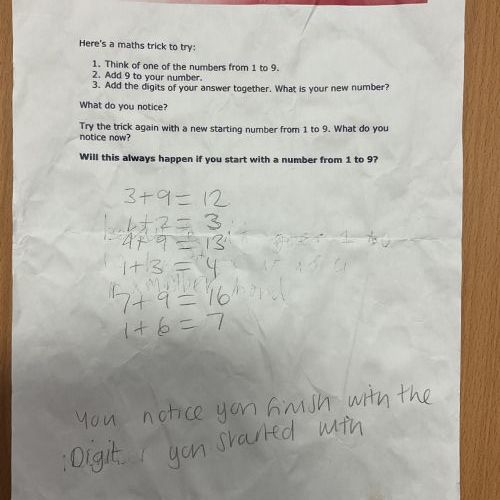 Here's a maths trick to try:
1. Think of one of the numbers from 1 to 9.
2. Add 9 to your number.
3. Add the digits of your answer together. What is your new number?
What do you notice?
Try the trick again with a new starting number from 1 to 9. What do you
notice now?
Will this always happen if you start with a number from 1 to 9?
3+9=12
1+2=3
4+9=13
1+3=4
7+9=16
1+6=7
you notice you finish with the
Digit you started with